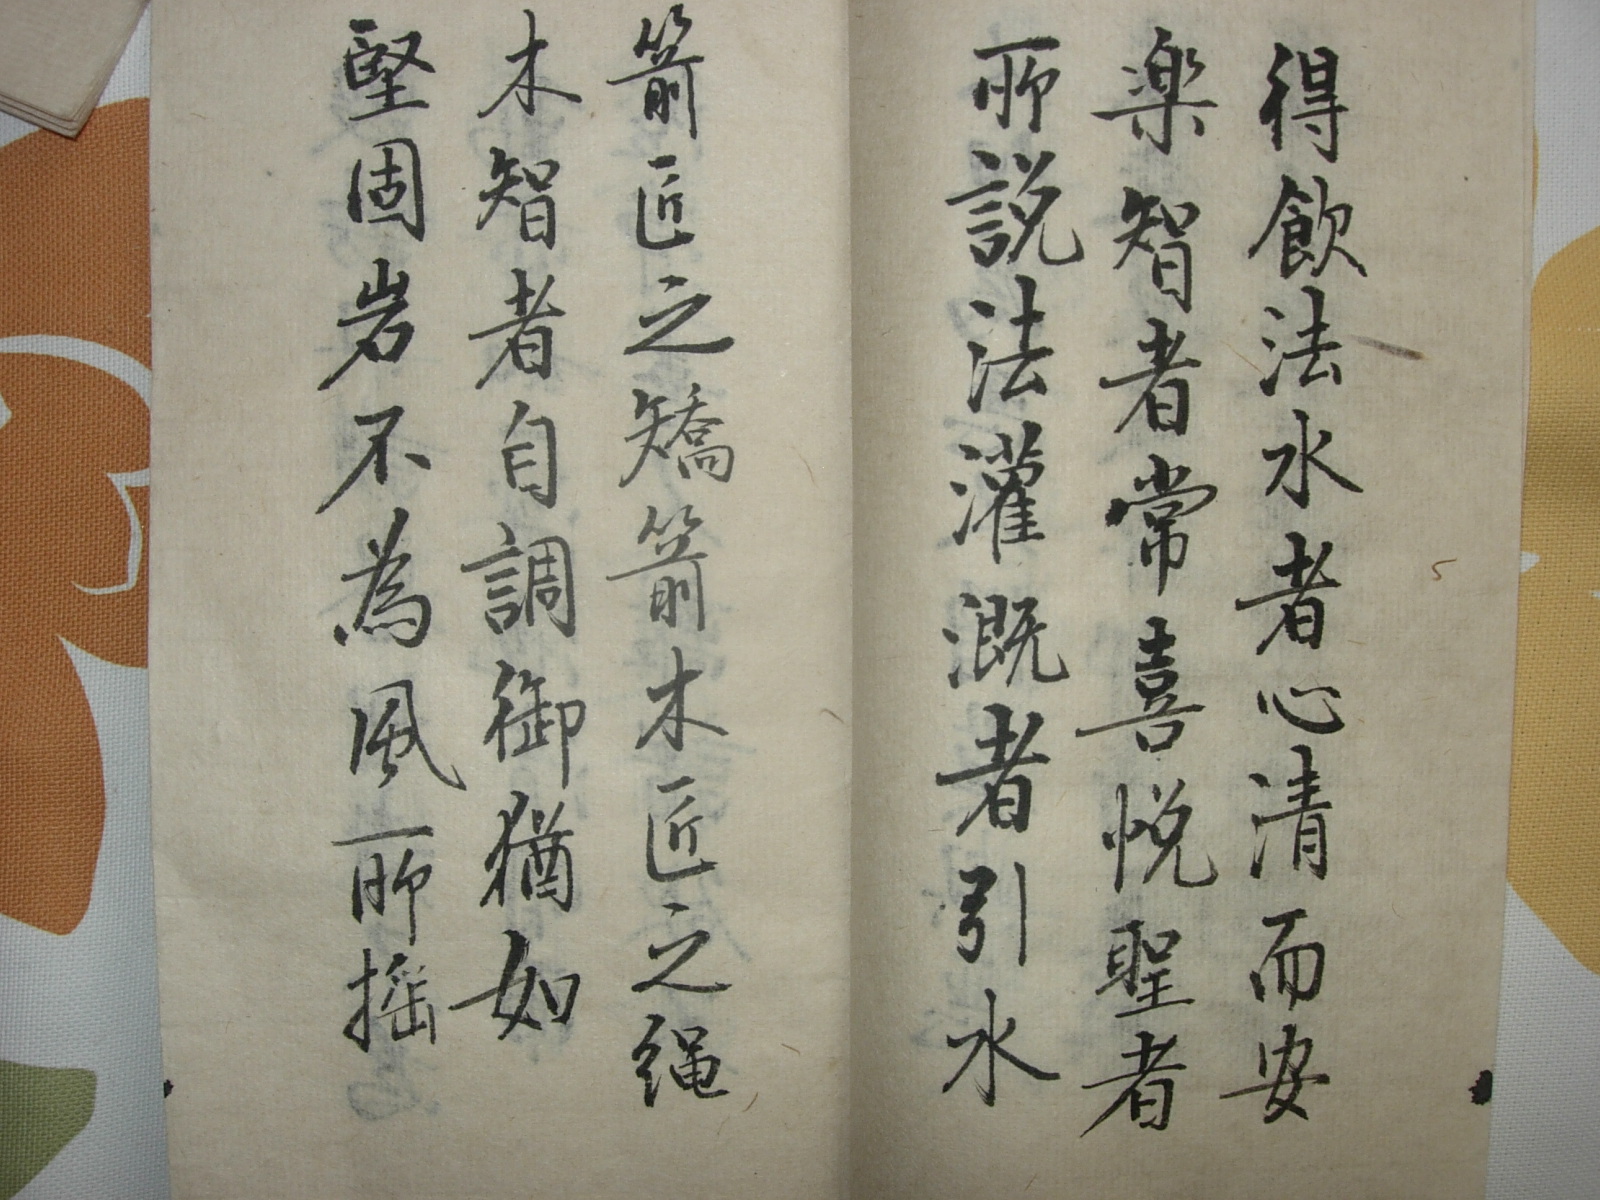 得飲法水者心清而安
楽智者常喜悦聖者
所説法灌漑者引水
箭匠之矯箭木匠之绳
木智者自調御猶如
堅固岩不為風所揺